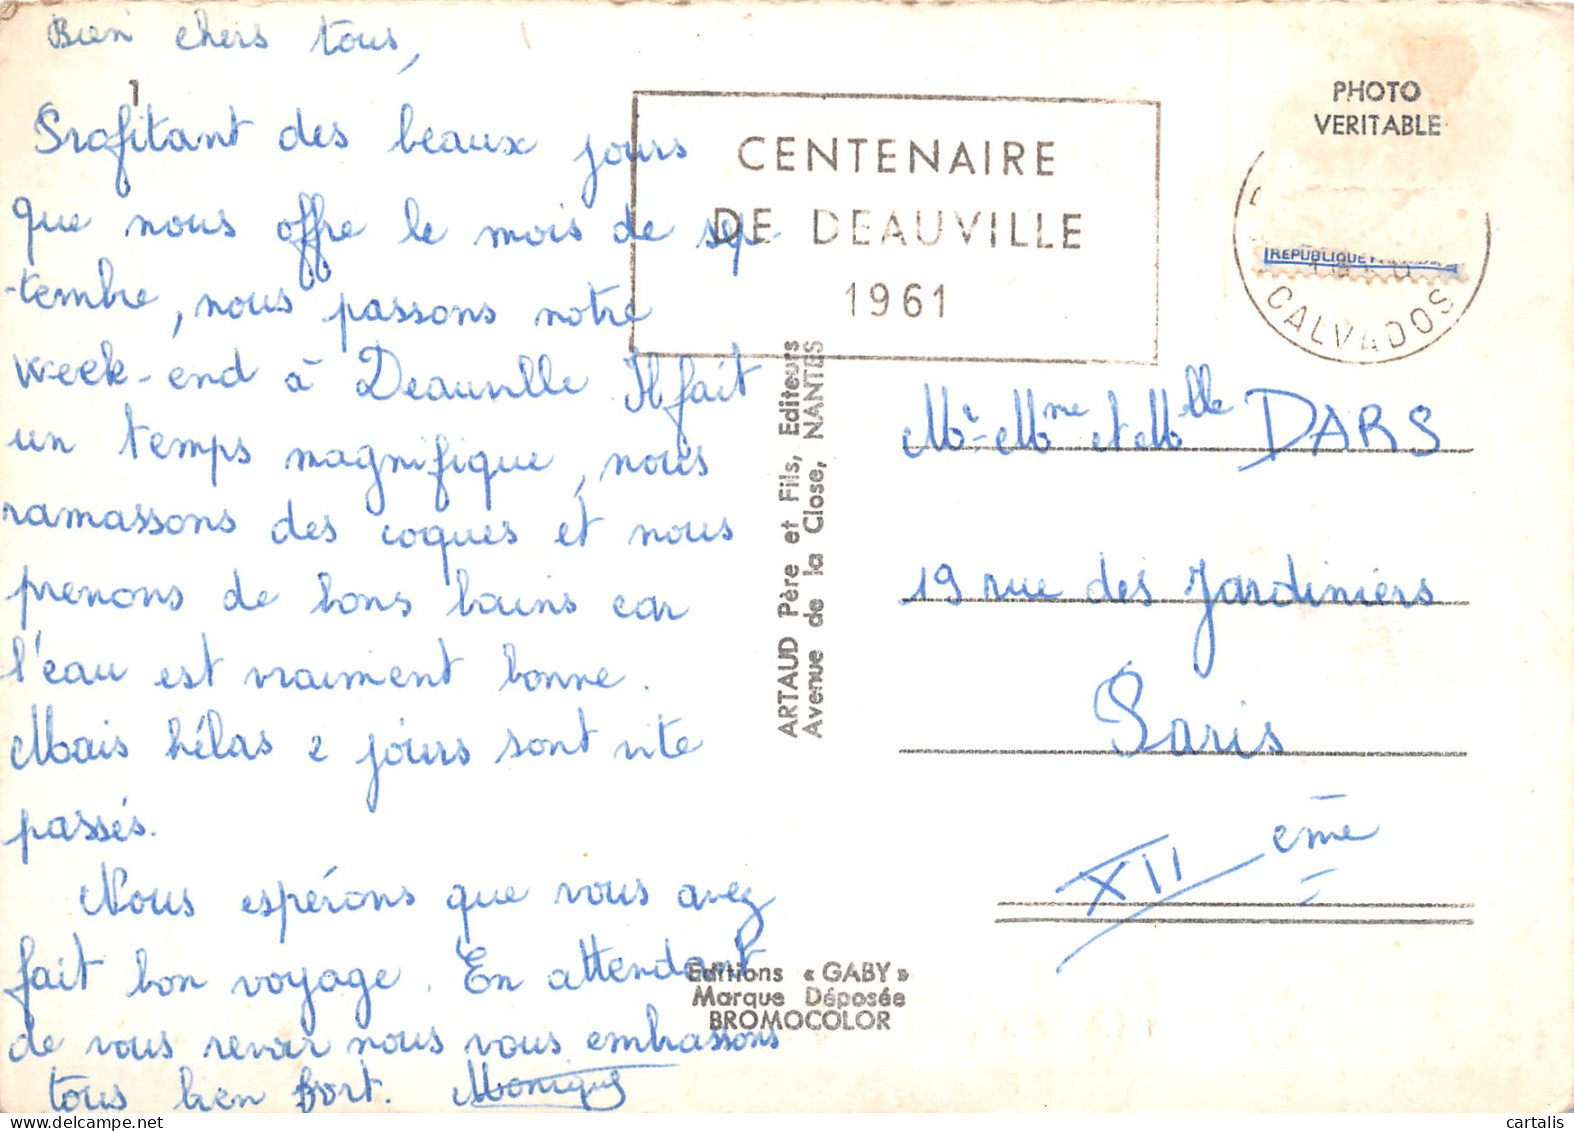 Bien chers tous,
1
Profitant des beaux jours
que nous offre le mois de sep-
-tembre, nous passons notre
week-end à Deauville Il fait
un temps magnifique, nous
ramassons des coques et nous
prenons de bons bains car
l'eau est vraiment bonne.
Mais hélas 2 jours sont vite
passés.
Nous espérons que vous avez
fait bon voyage. En attendant
de vous revoir nous vous embrassons
tous bien fort. Monique
CENTENAIRE
DE DEAUVILLE
1961
PHOTO
VERITABLE
REPUBLIQUE
CALVADOS
ARTAUD Père et Fils, Editeurs
Avenue de la Close, NANTES
Mr-Mme et Mlle DARS
19 rue des Jardiniers
Paris
XII eme
Editions « GABY »
Marque Déposée
BROMOCOLOR
cartalis